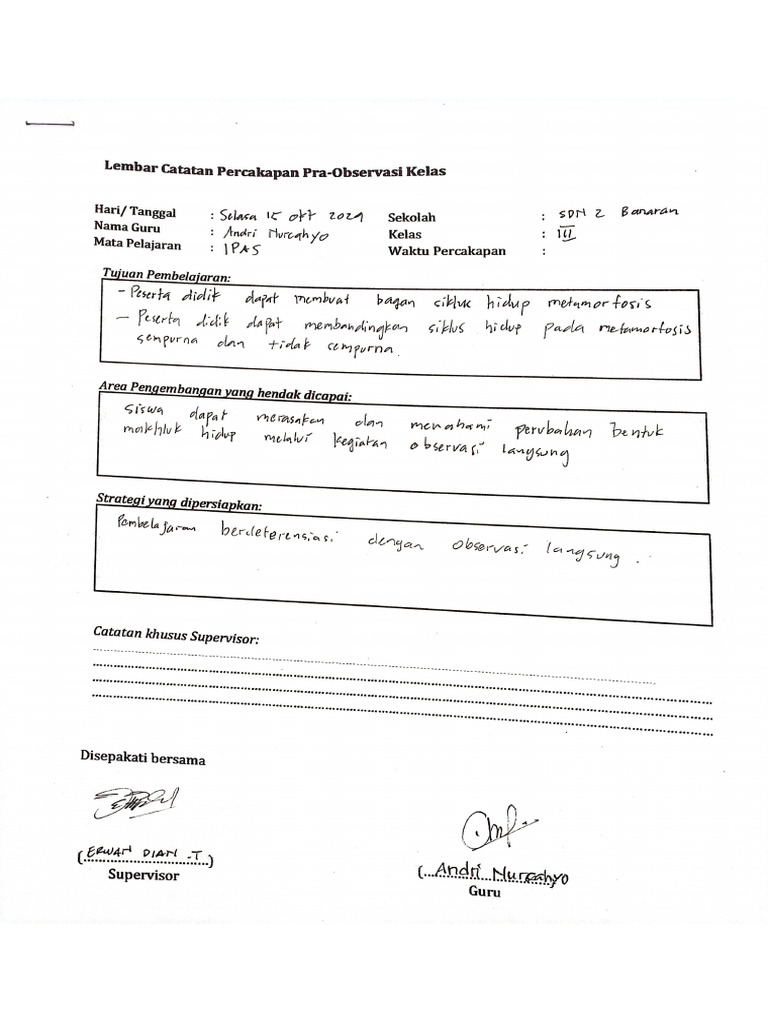 Lembar Catatan Percakapan Pra-Observasi Kelas
Hari/ Tanggal : Selasa 15 Okt 2024
Nama Guru : Andri Nurcahyo
Mata Pelajaran : IPAS
Sekolah : SDN 2 Banaran
Kelas : III
Waktu Percakapan :
Tujuan Pembelajaran:
- Peserta didik dapat membuat bagan siklus hidup metamorfosis
- Peserta didik dapat membandingkan siklus hidup pada metamorfosis
sempurna dan tidak sempurna.
Area Pengembangan yang hendak dicapai:
Siswa dapat merasakan dan memahami perubahan bentuk
makhluk hidup melalui kegiatan observasi langsung
Strategi yang dipersiapkan:
Pembelajaran berdeferensiasi dengan observasi langsung.
Catatan khusus Supervisor:
Disepakati bersama
(ERWAN DIAN .T)
Supervisor
(Andri Nurcahyo
Guru